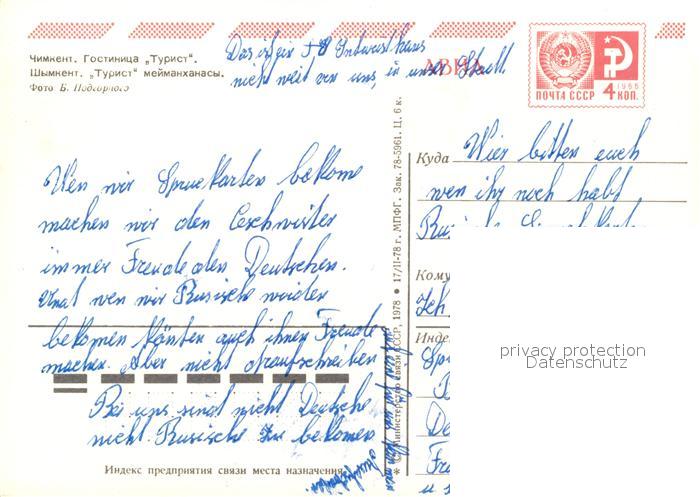 Чимкент. Гостиница „Турист".
Шымкент. „Турист" мейманханасы.
Фото Б. Подгорного
Das ist ein Inturisthaus
nicht weit von uns, in unser Stadt.
АВИА
ПОЧТА СССР
1966
4 КОП.
Wen wir Spruckarten bekome
machen wir den Geschwister
immer Freude den Deutschen.
Unt wen wir Rusische wieder
bekomen könten auch ihnen Freude
machen. Aber nicht draufschreiben
Bei uns sind nicht Deutsche
nicht Rusische zu bekomen
Индекс предприятия связи места назначения
© Министерство связи СССР, 1978 ● 17/II-78 г. МПФГ. Зак. 78-5961. Ц. 6 к.
Куда
Wier bitten euch
wen ihr noch habt
Кому
Ich
Инде
privacy protection
Datenschutz